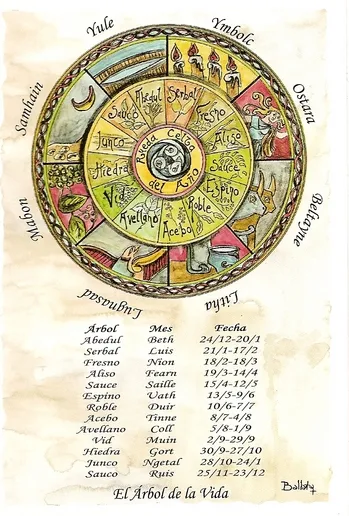 Yule
Ymbolc
Ostara
Beltayne
Litha
Lugnasad
Mabon
Samhain
Abedul
Serbal
Fresno
Aliso
Sauce
Espino
Roble
Acebo
Avellano
Vid
Hiedra
Junco
Sauco
Rueda Celta
del Año
Árbol Mes Fecha
Abedul Beth 24/12-20/1
Serbal Luis 21/1-17/2
Fresno Nion 18/2-18/3
Aliso Fearn 19/3-14/4
Sauce Saille 15/4-12/5
Espino Uath 13/5-9/6
Roble Duir 10/6-7/7
Acebo Tinne 8/7-4/8
Avellano Coll 5/8-1/9
Vid Muin 2/9-29/9
Hiedra Gort 30/9-27/10
Junco Ngetal 28/10-24/1
Sauco Ruis 25/11-23/12
El Árbol de la Vida